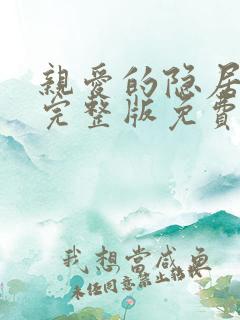 親愛的隐居
完整版免費
我想當咸魚
未经同意禁止转载